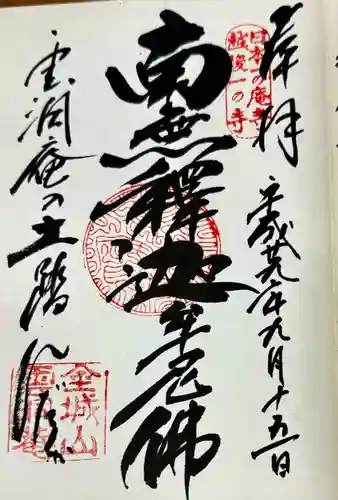 奉拝
日本一の庵寺
越後一の寺
平成廿九年九月十五日
南無釋迦牟尼佛
雲洞庵の土踏んだか
金城山
雲洞庵